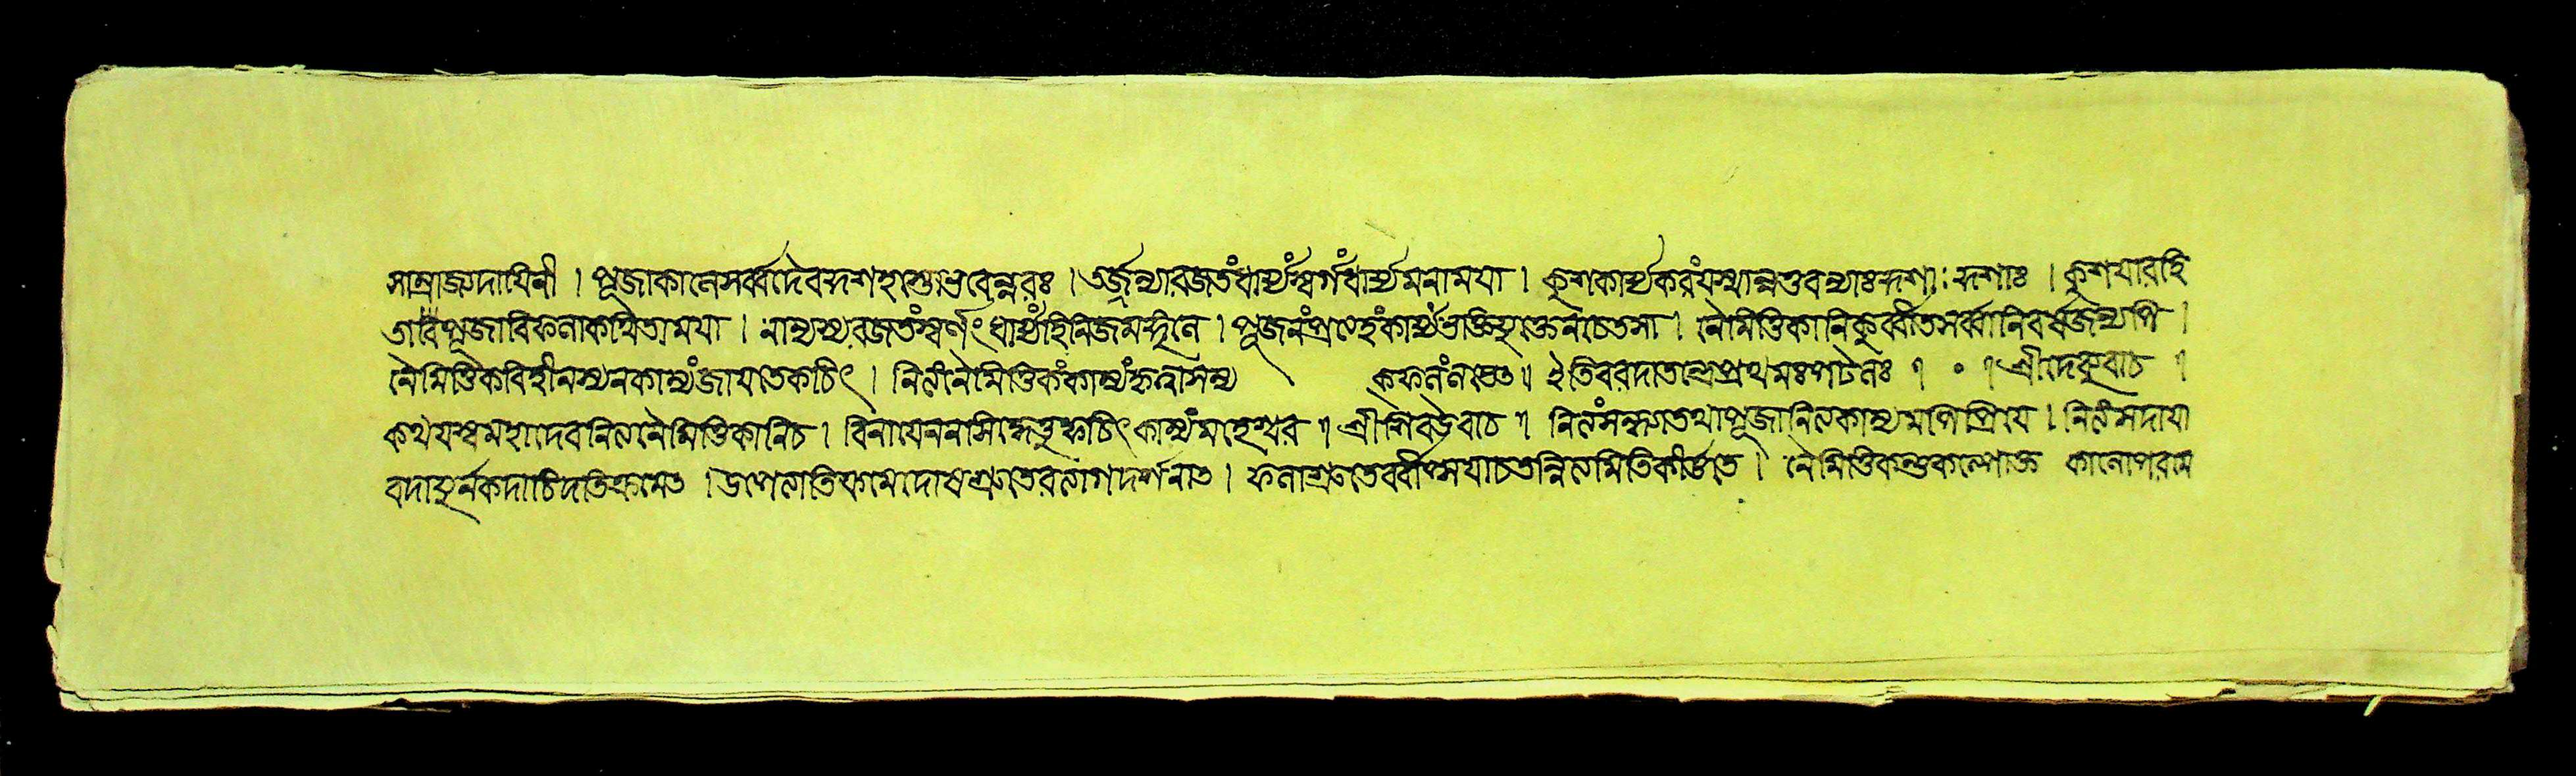 সাম্রাজ্যদায়িনী । পূজাকালে সর্ব্বদৈব দর্শহস্তো ভবেন্নরঃ । তর্জ্জন্যা রজতং ধার্য্যং স্বর্ণং ধার্য্যমনাময়া । কুশকার্য্যকরং যস্মান্নতু বন্যাঃ কুশাঃ কুশাঃ । কুশেয়ারহি
তা দেবি পূজা বিফলা কথিতা ময়া । নান্যস্য রজতং স্বর্ণং ধার্য্যং হি নিজমঙ্গলে । পূজনং প্রত্যহং কার্য্যং ভক্তিযুক্তেন চেতসা । নৈমিত্তিকানি কুর্ব্বীত সর্ব্বানি বর্ষজন্যপি ।
নৈমিত্তিকবিহীনস্য ন কাম্যং জায়তে কচিৎ । নিত্যং নৈমিত্তিকং কাম্যং কৃত্বা সম্য ক্ফলং লভেৎ ॥ ইতি বরদাতন্ত্রে প্রথমঃ পটলঃ । ০ । শ্রীদেব্যুবাচ ।
কথয়স্ব মহাদেব নিত্যনৈমিত্তিকানি চ । বিনা যেন ন সিদ্ধেত্তু কচিৎ কাম্যং মহেশ্বর । শ্রীশিব উবাচ । নিত্যং সন্ধ্যা তথা পূজা নিত্যকাম্যমপি প্রিয়ে । নিত্যং সদা যা
বদায়ুর্ন কদাচিদতিক্রমেৎ । উপেত্যাতিক্রমে দোষশ্রুতেরত্যাগদর্শনাৎ । ফলাশ্রুতের্বীপ্সয়া চ তন্নিত্যমিতি কীর্ত্তিতে । নৈমিত্তিকন্তুকল্পোক্ত কালোপরাম